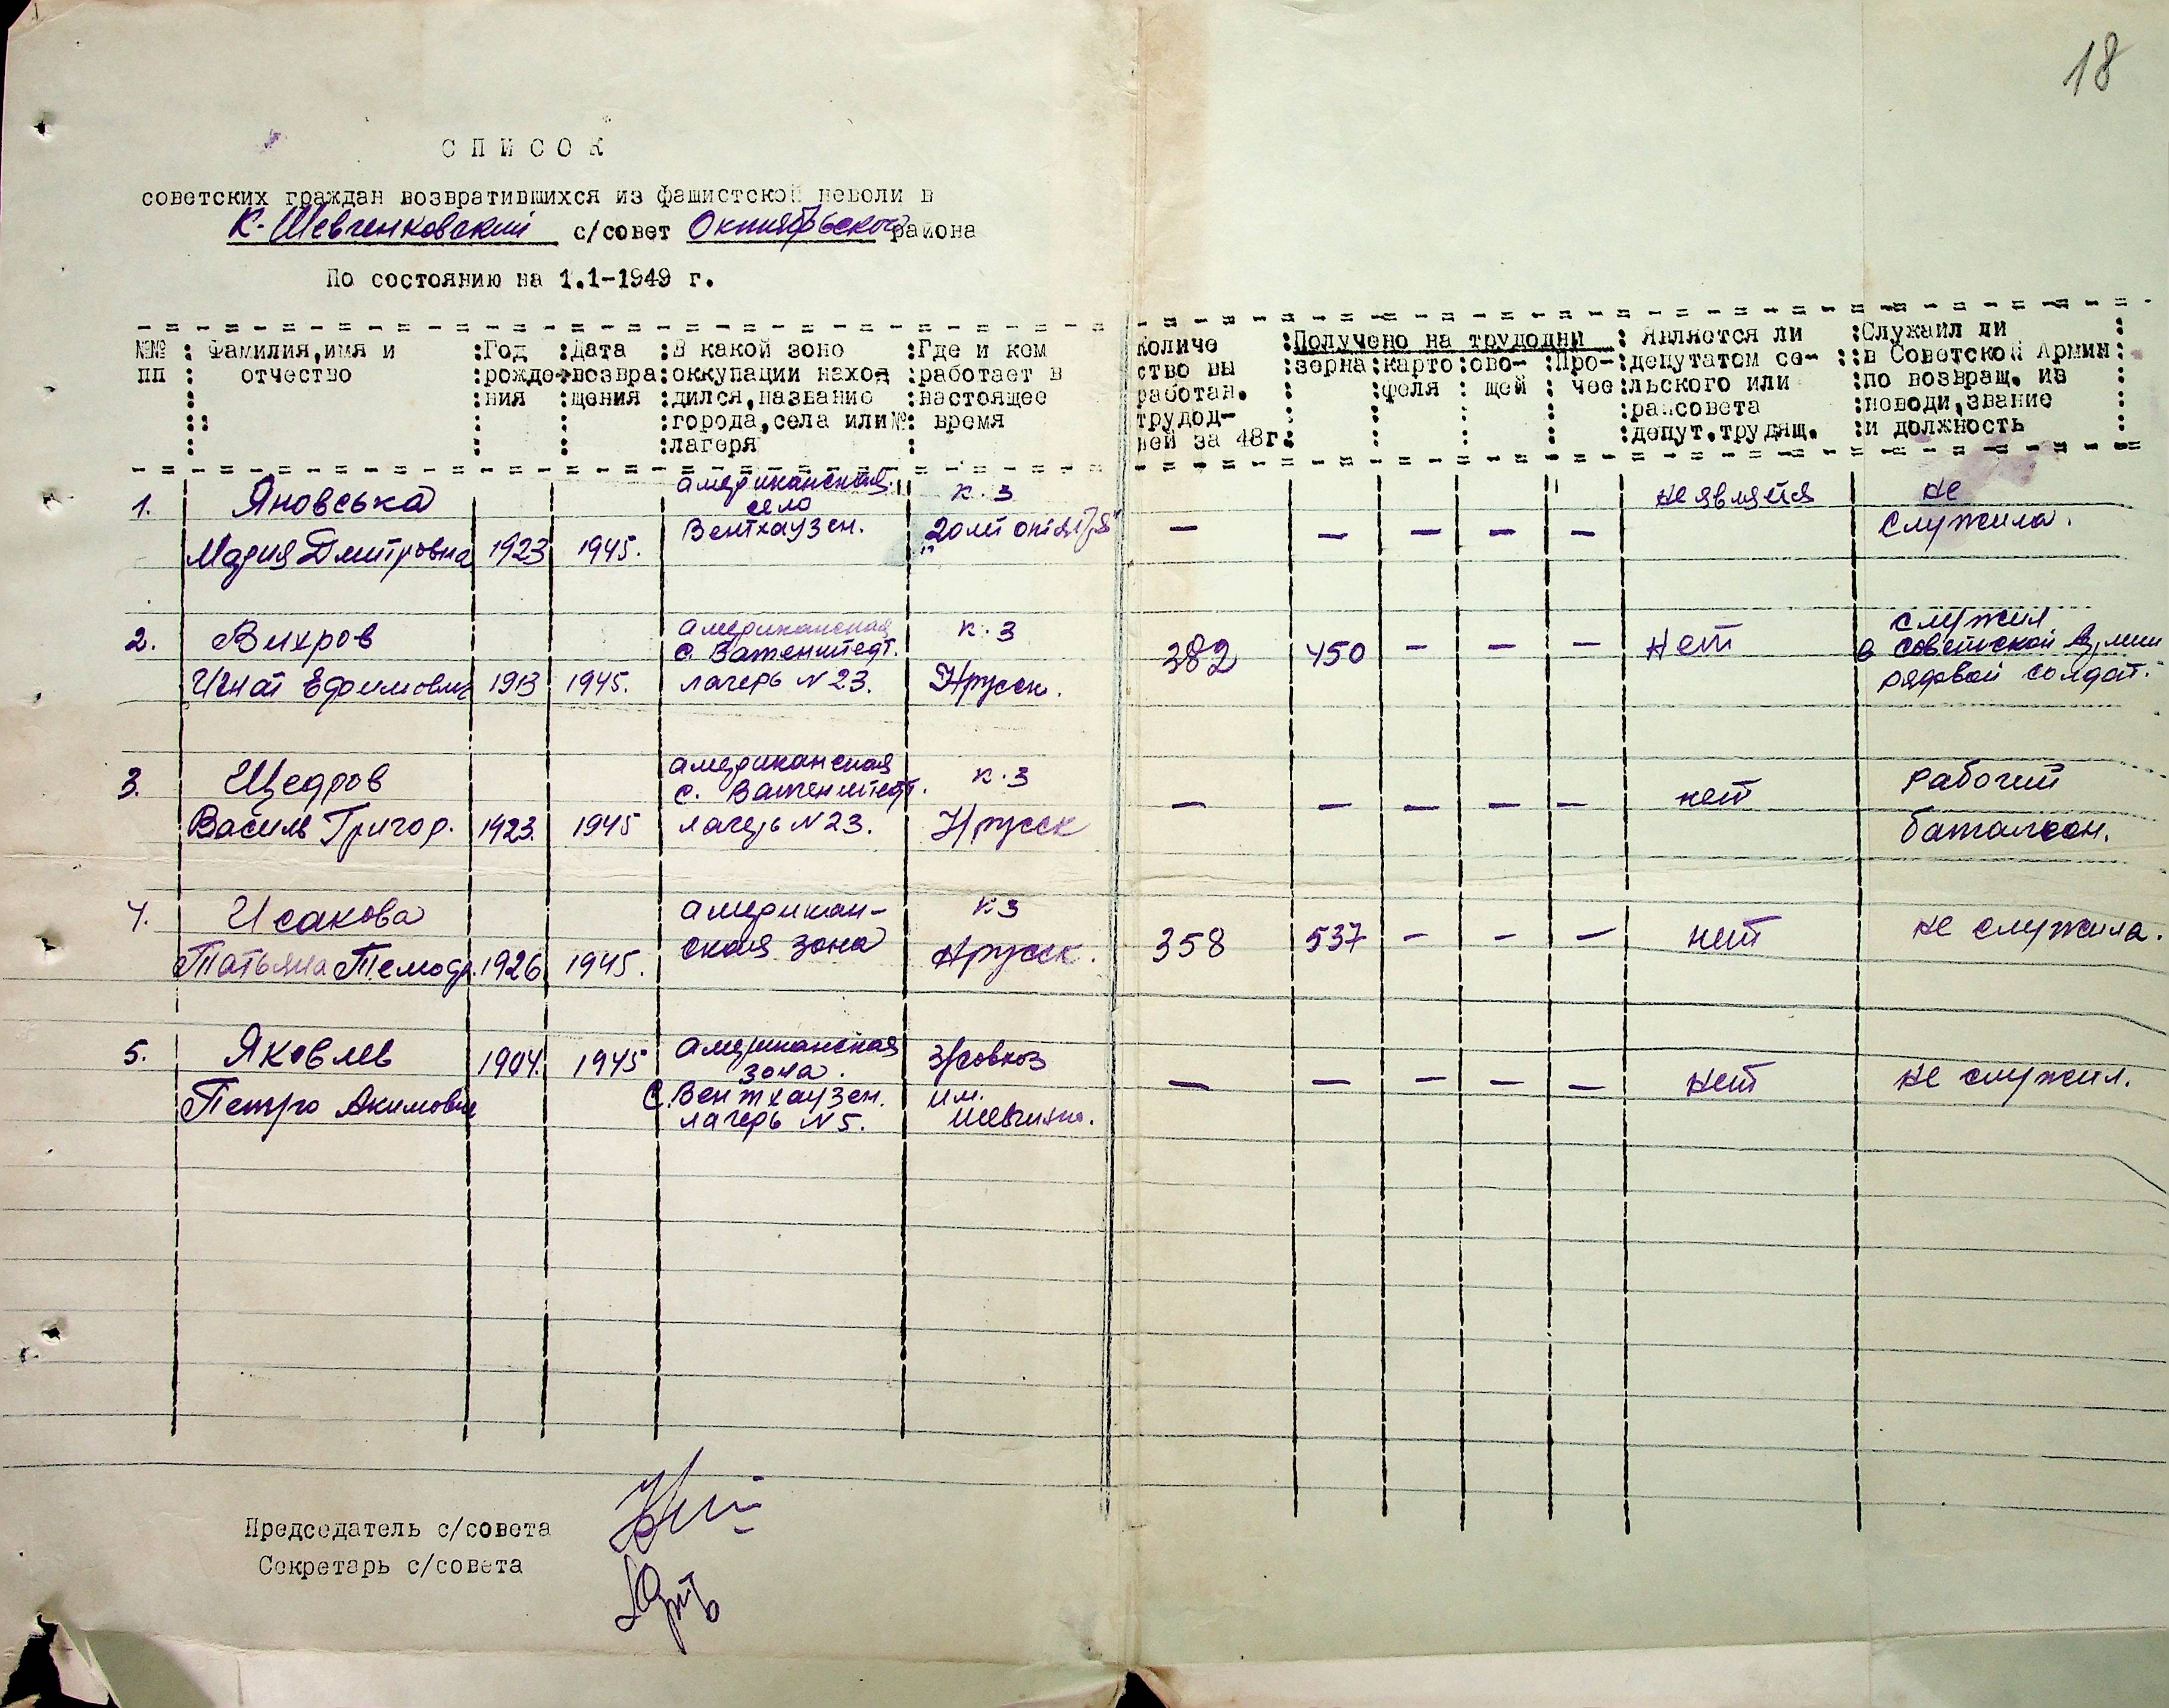 18
СПИСОК
советских граждан возвратившихся из фашистской неволи в
К-Шевченковский с/совет Октябрьского района
По состоянию на 1.1-1949 г.
№№ пп : Фамилия,имя и отчество : Год рожде- ния : Дата возвра- щения : В какой зоне оккупации наход дился,название города,села или № лагеря : Где и кем работает в настоящее время
Количе ство вы работан. трудод- ней за 48г. : Получено на трудодни : зерна : карто феля : ово- щей : Про- чее : Является ли депутатом се- льского или райсовета депут.трудящ. : Служаил ли в Советской Армии по возвращ. из неводи,звание и должность
1. Яновська Мария Дмитровна 1923 1945. американская село Вентхаузен. к.з "20 лет октября" — — — — — не является не служила.
2. Вихров Игнат Ефимович 1913 1945. американская с. Ватенштедт. лагерь N 23. к.з 382 450 — — — Нет служил в советской Армии рядовой солдат.
3. Щедров Василь Григор. 1923. 1945 американская с. Ватенштедт. лагерь N 23. к.з — — — — — нет рабочий баталион.
4. Исакова Татьяна 1926 1945. американ- ская зона кз 358 537 — — — нет не служила.
5. Яковлев Петро Акимович 1904. 1945 американская зона. с. Вентхаузен. лагерь N 5. з/совхоз им. — — — — — нет не служил.
Председатель с/совета
Секретарь с/совета